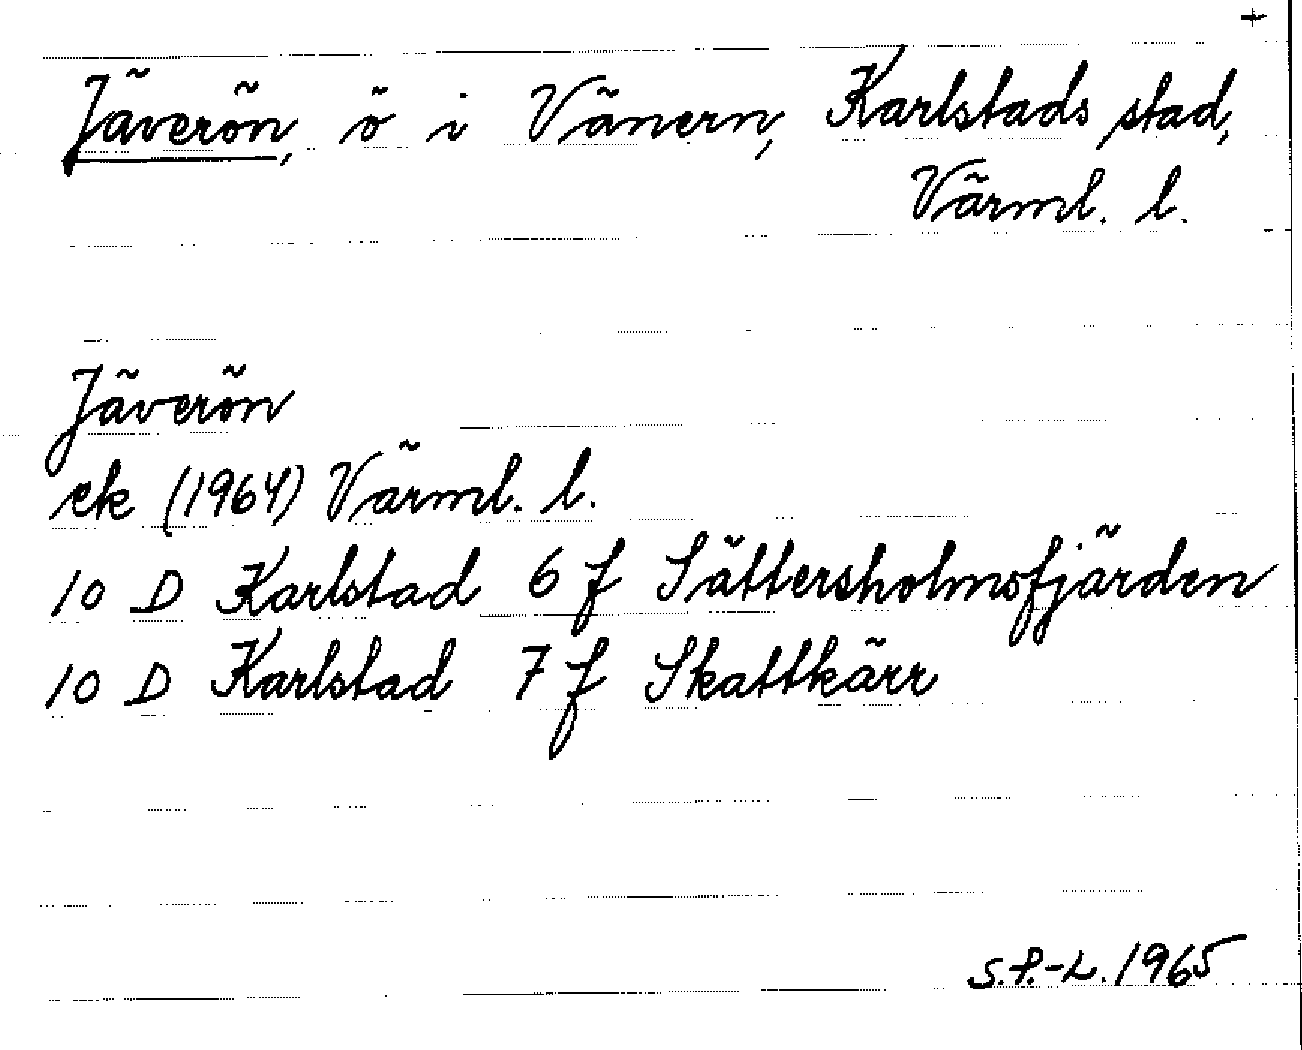 +
Jäverön, ö i Vänern, Karlstads stad,
Värml. l.
Jäverön
ek (1964) Värml. l.
10 D Karlstad 6 f Sättersholmsfjärden
10 D Karlstad 7 f Skattkärr
S.P.-L. 1965